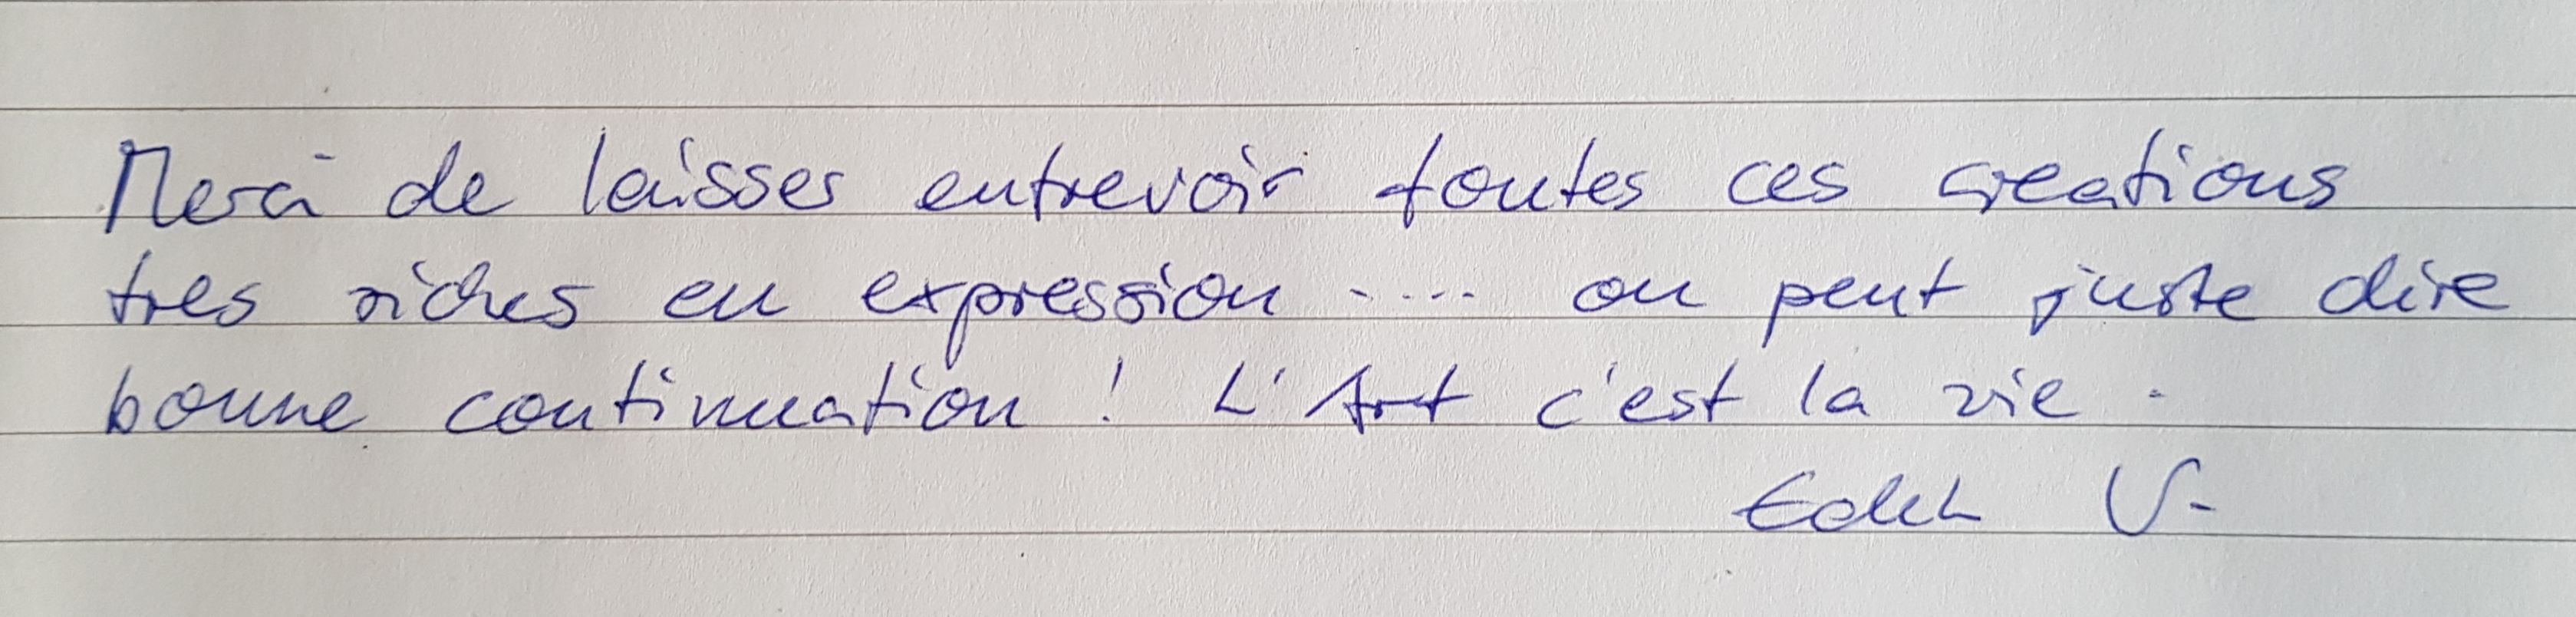 Merci de laisser entrevoir toutes ces creations
tres riches en expression .... on peut juste dire
bonne continuation ! L'Art c'est la vie .
V.